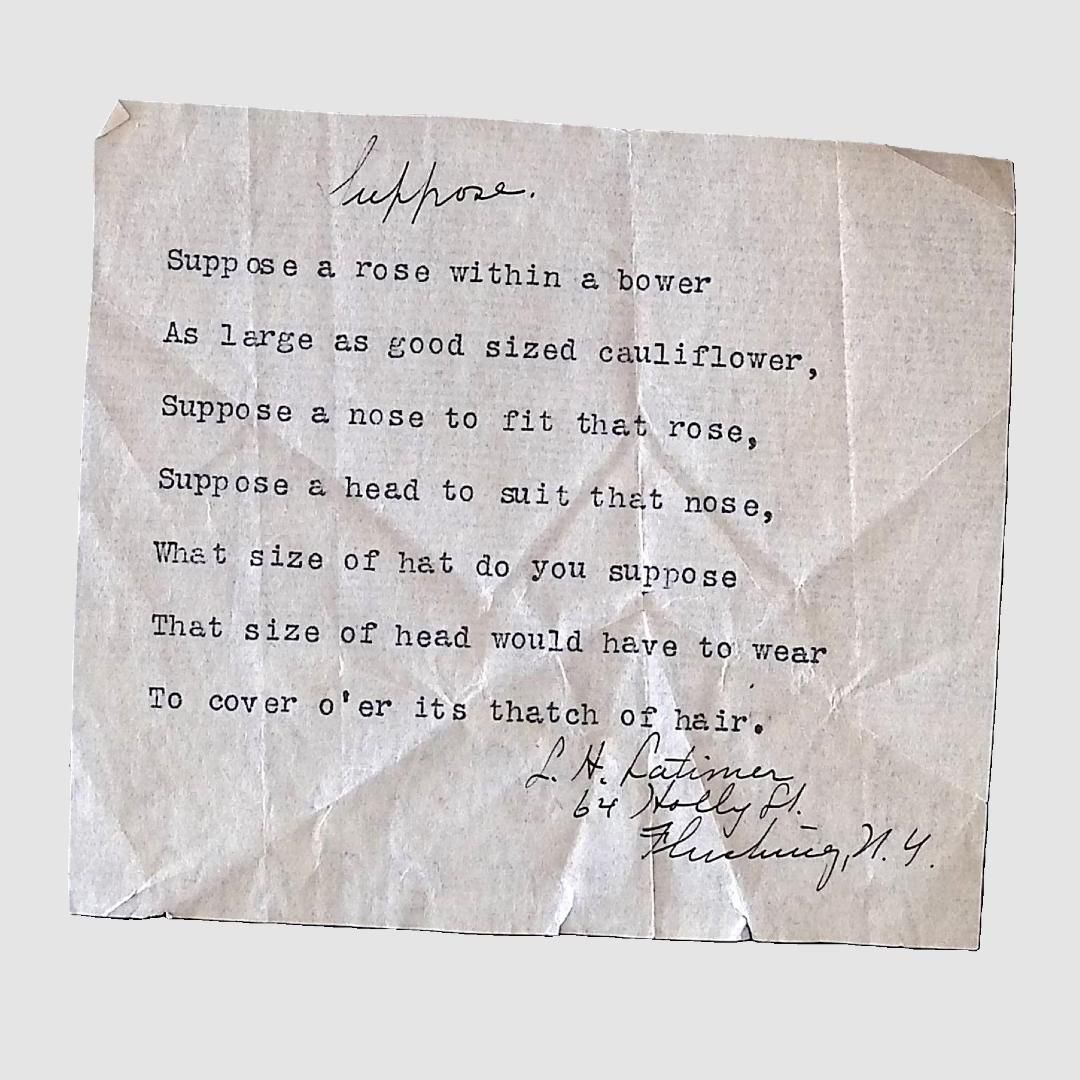 Suppose.
Suppose a rose within a bower
As large as good sized cauliflower,
Suppose a nose to fit that rose,
Suppose a head to suit that nose,
What size of hat do you suppose
That size of head would have to wear
To cover o'er its thatch of hair.
L. H. Latimer
64 Holly St.
Flushing, N. Y.